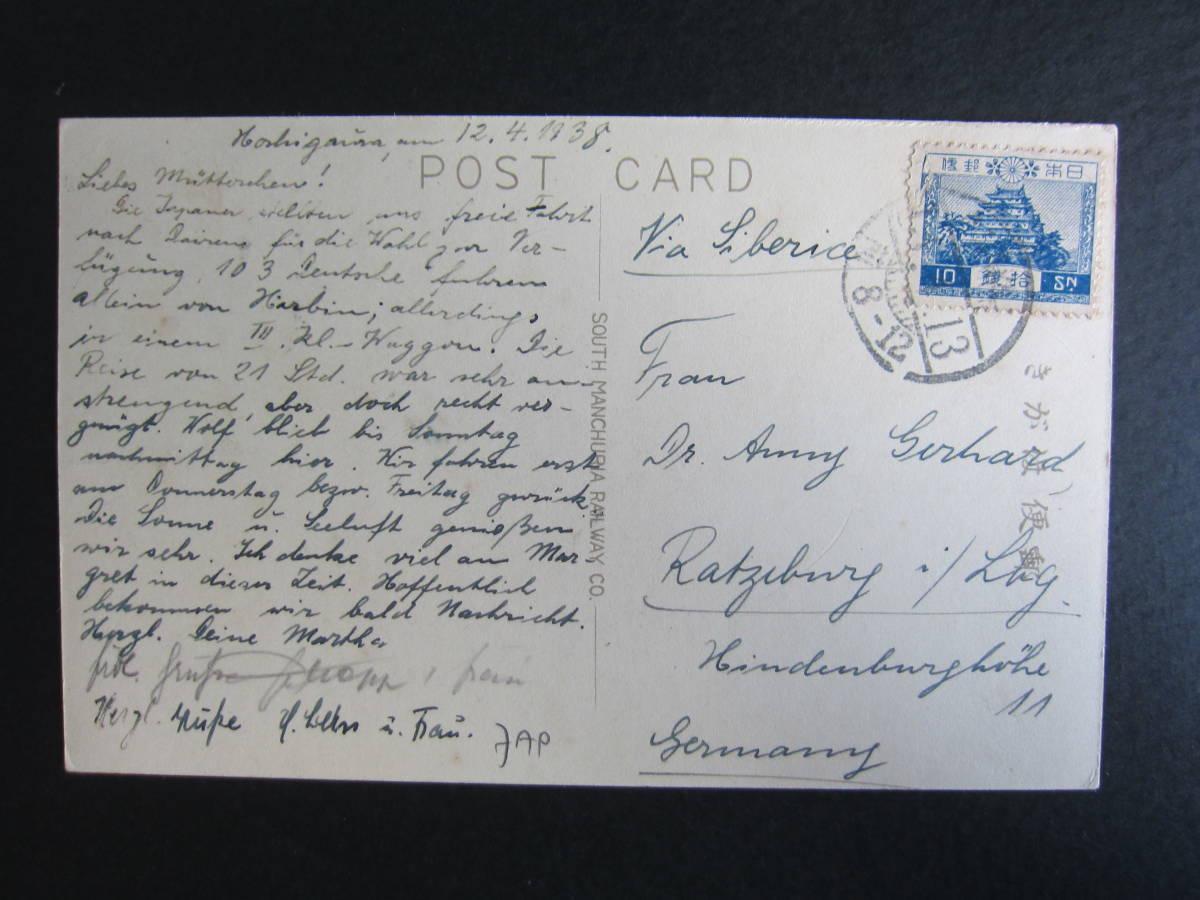 Hoshigaura, am 12.4.1938.
POST CARD
Liebes Mütterchen!
Die Japaner stellten uns freie Fahrt
nach Dairen für die Wahl zur Ver-
fügung. 103 Deutsche fuhren
allein von Harbin; allerdings
in einem III. Kl.-Waggon. Die
Reise von 21 Std. war sehr an-
strengend, aber doch recht ver-
gnügt. Wolf blieb bis Sonntag
nachmittag hier. Wir fahren erst
am Donnerstag bezw. Freitag zurück.
Die Sonne u. Seeluft genießen
wir sehr. Ich denke viel an Mar-
gret in dieser Zeit. Hoffentlich
bekommen wir bald Nachricht.
Herzl. Deine Martha
Grüße
Herzl. Grüße u. Frau.
JAP
SOUTH MANCHURIA RAILWAY CO.
Via Siberia
Frau
Dr. Anny Gerhard
Ratzeburg i/ Lbg.
Hindenburghöhe
11
Germany
日本郵便
10 拾銭 SN
13
8-12
きがは便郵